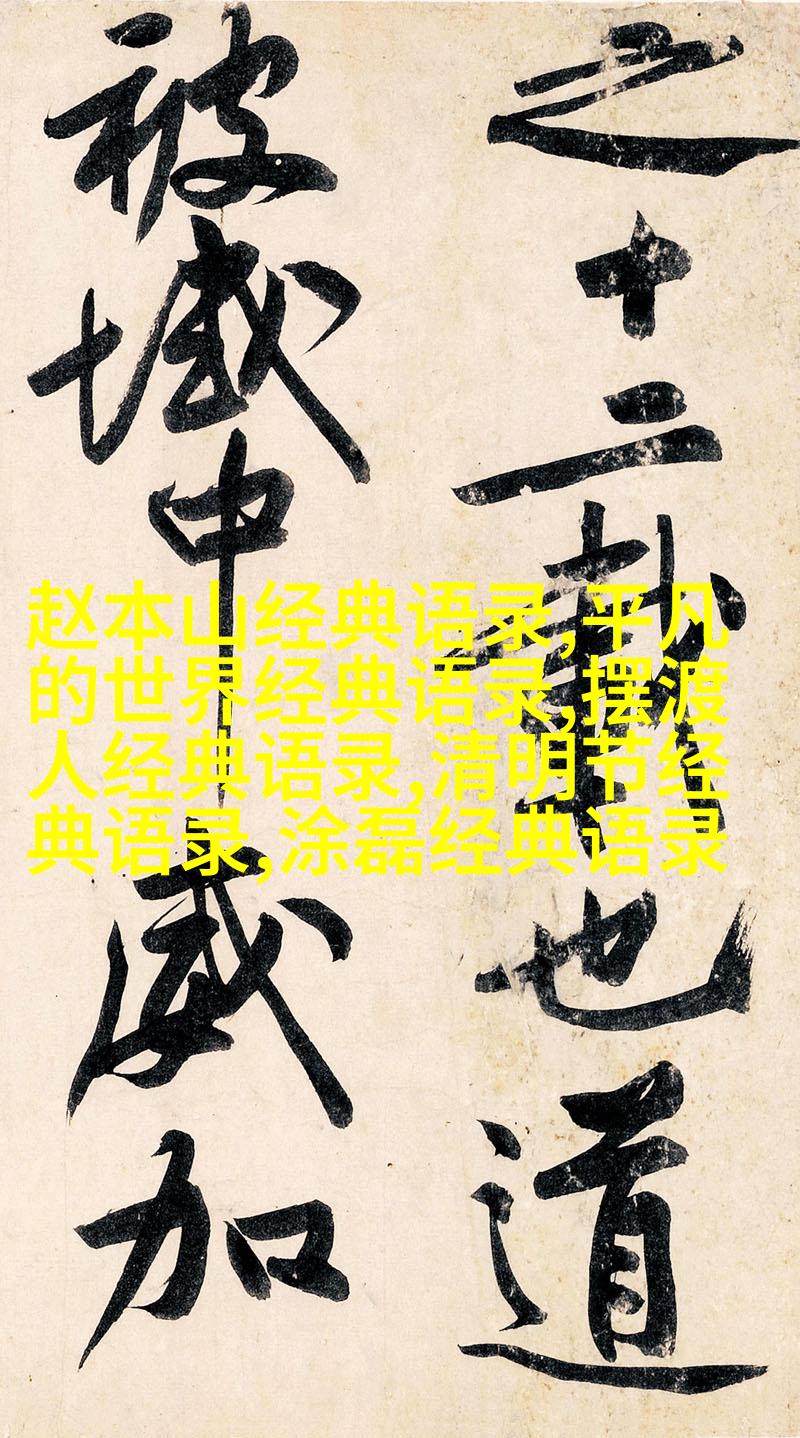 之十二載也道
被域中威加
赵本山经典语录,平凡
的世界经典语录,摆渡
人经典语录,清明节经
典语录,涂磊经典语录